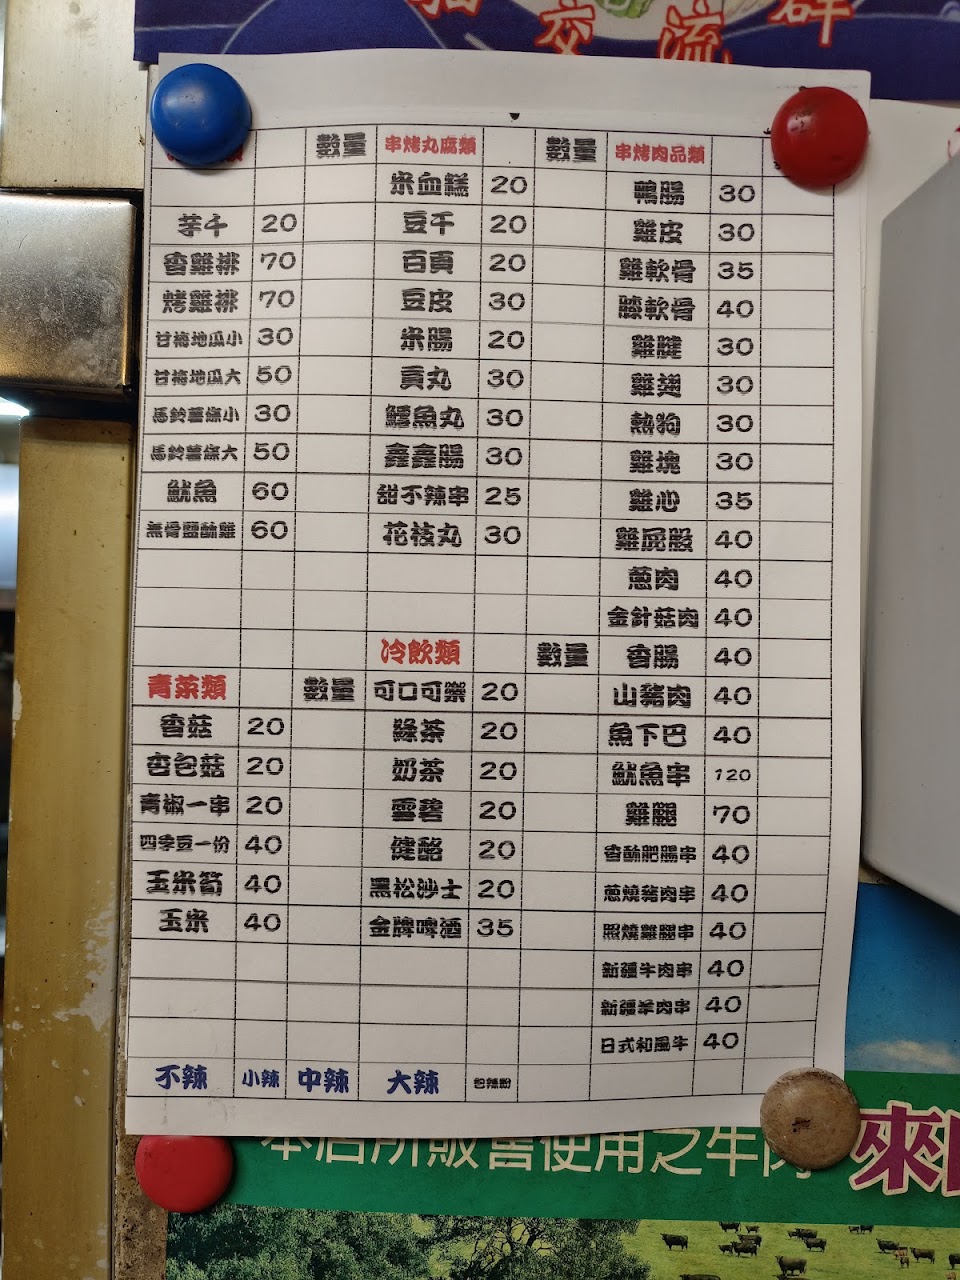 交流群
數量 串烤丸腐類 數量 串烤肉品類
米血糕 20 鴨腸 30
芋干 20 豆干 20 雞皮 30
香雞排 70 百頁 20 雞軟骨 35
烤雞排 70 豆皮 30 膝軟骨 40
甘梅地瓜小 30 米腸 20 雞腱 30
甘梅地瓜大 50 貢丸 30 雞翅 30
馬鈴薯條小 30 鱈魚丸 30 熱狗 30
馬鈴薯條大 50 鑫鑫腸 30 雞塊 30
魷魚 60 甜不辣串 25 雞心 35
無骨鹽酥雞 60 花枝丸 30 雞屁股 40
蔥肉 40
金針菇肉 40
冷飲類 數量 香腸 40
青菜類 數量 可口可樂 20 山豬肉 40
香菇 20 綠茶 20 魚下巴 40
杏包菇 20 奶茶 20 魷魚串 120
青椒一串 20 雪碧 20 雞腿 70
四季豆一份 40 健酪 20 香酥肥腸串 40
玉米筍 40 黑松沙士 20 蔥燒豬肉串 40
玉米 40 金牌啤酒 35 照燒雞腿串 40
新疆牛肉串 40
新疆羊肉串 40
日式和風牛 40
不辣 小辣 中辣 大辣 包辣粉
本店所販售使用之牛肉 來